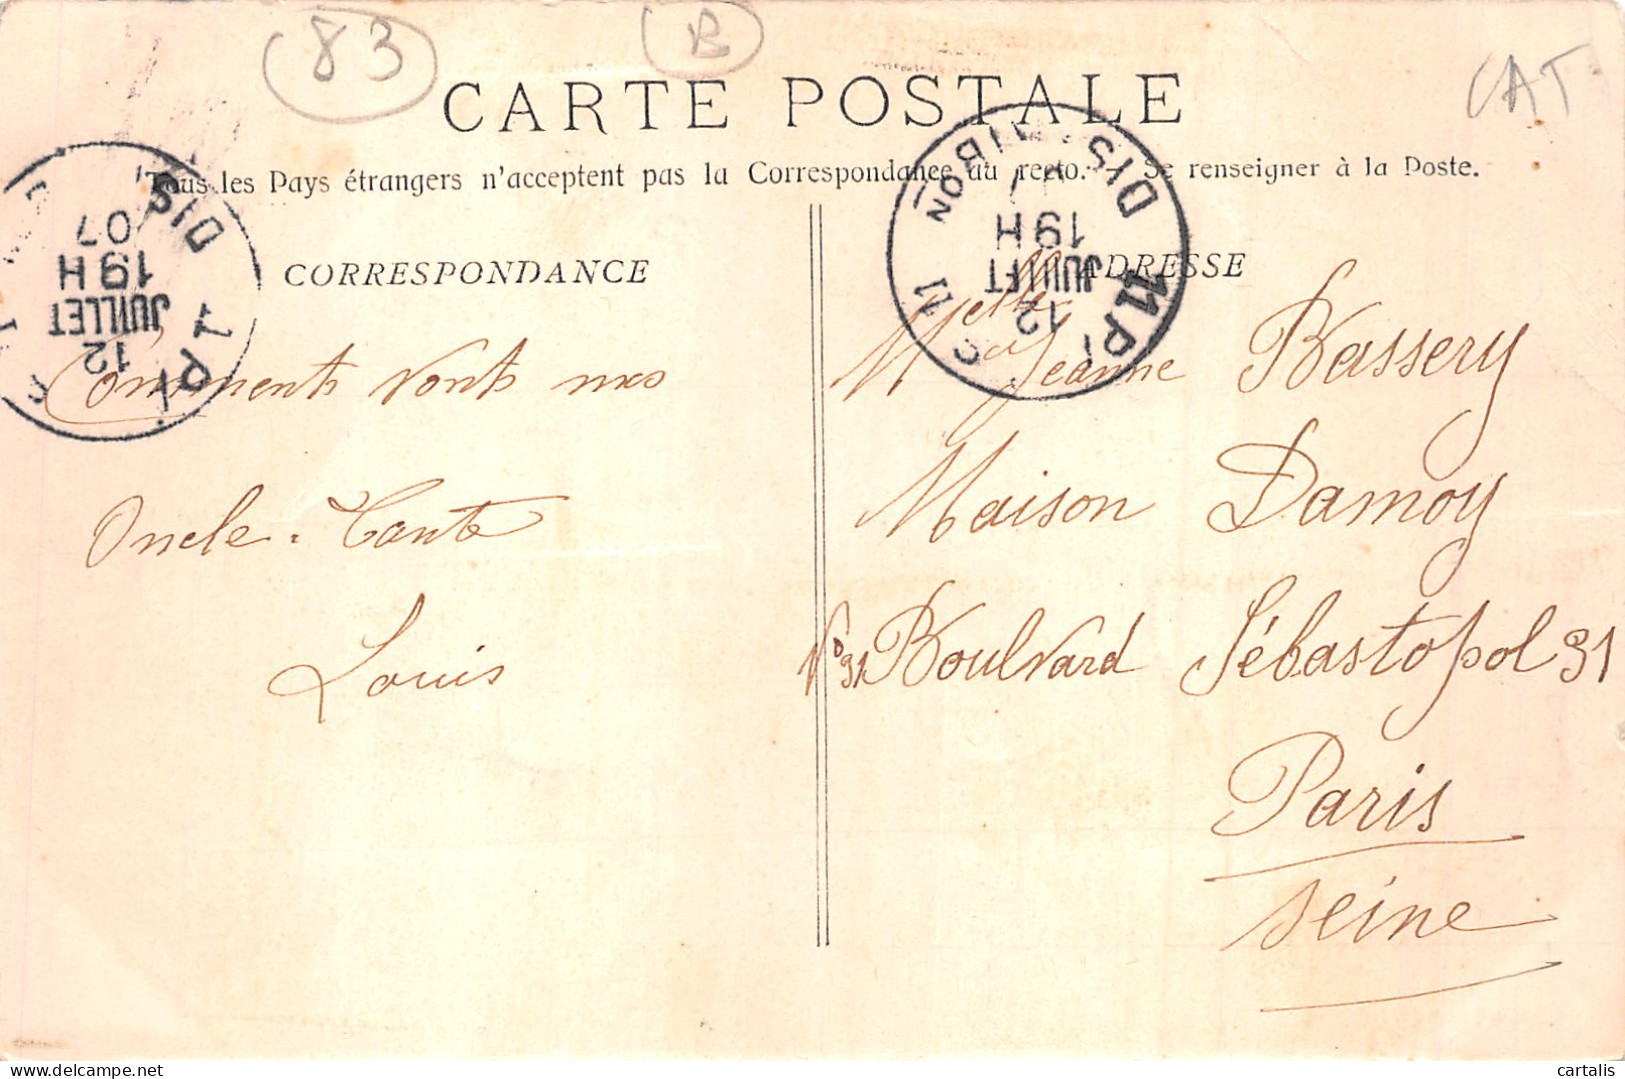 83
B
CAT
CARTE POSTALE
Tous les Pays étrangers n'acceptent pas la Correspondance au recto. - Se renseigner à la Poste.
CORRESPONDANCE
Comments vonts mes
Oncle. Tante
Louis
ADRESSE
Melle Jeanne Bassery
Maison Damoy
No 31 Boulvard Sébastopol 31
Paris
Seine
12
JUILLET
19H
07
DIS
12
JUILLET
19H
DIS
delcampe.net
cartalis